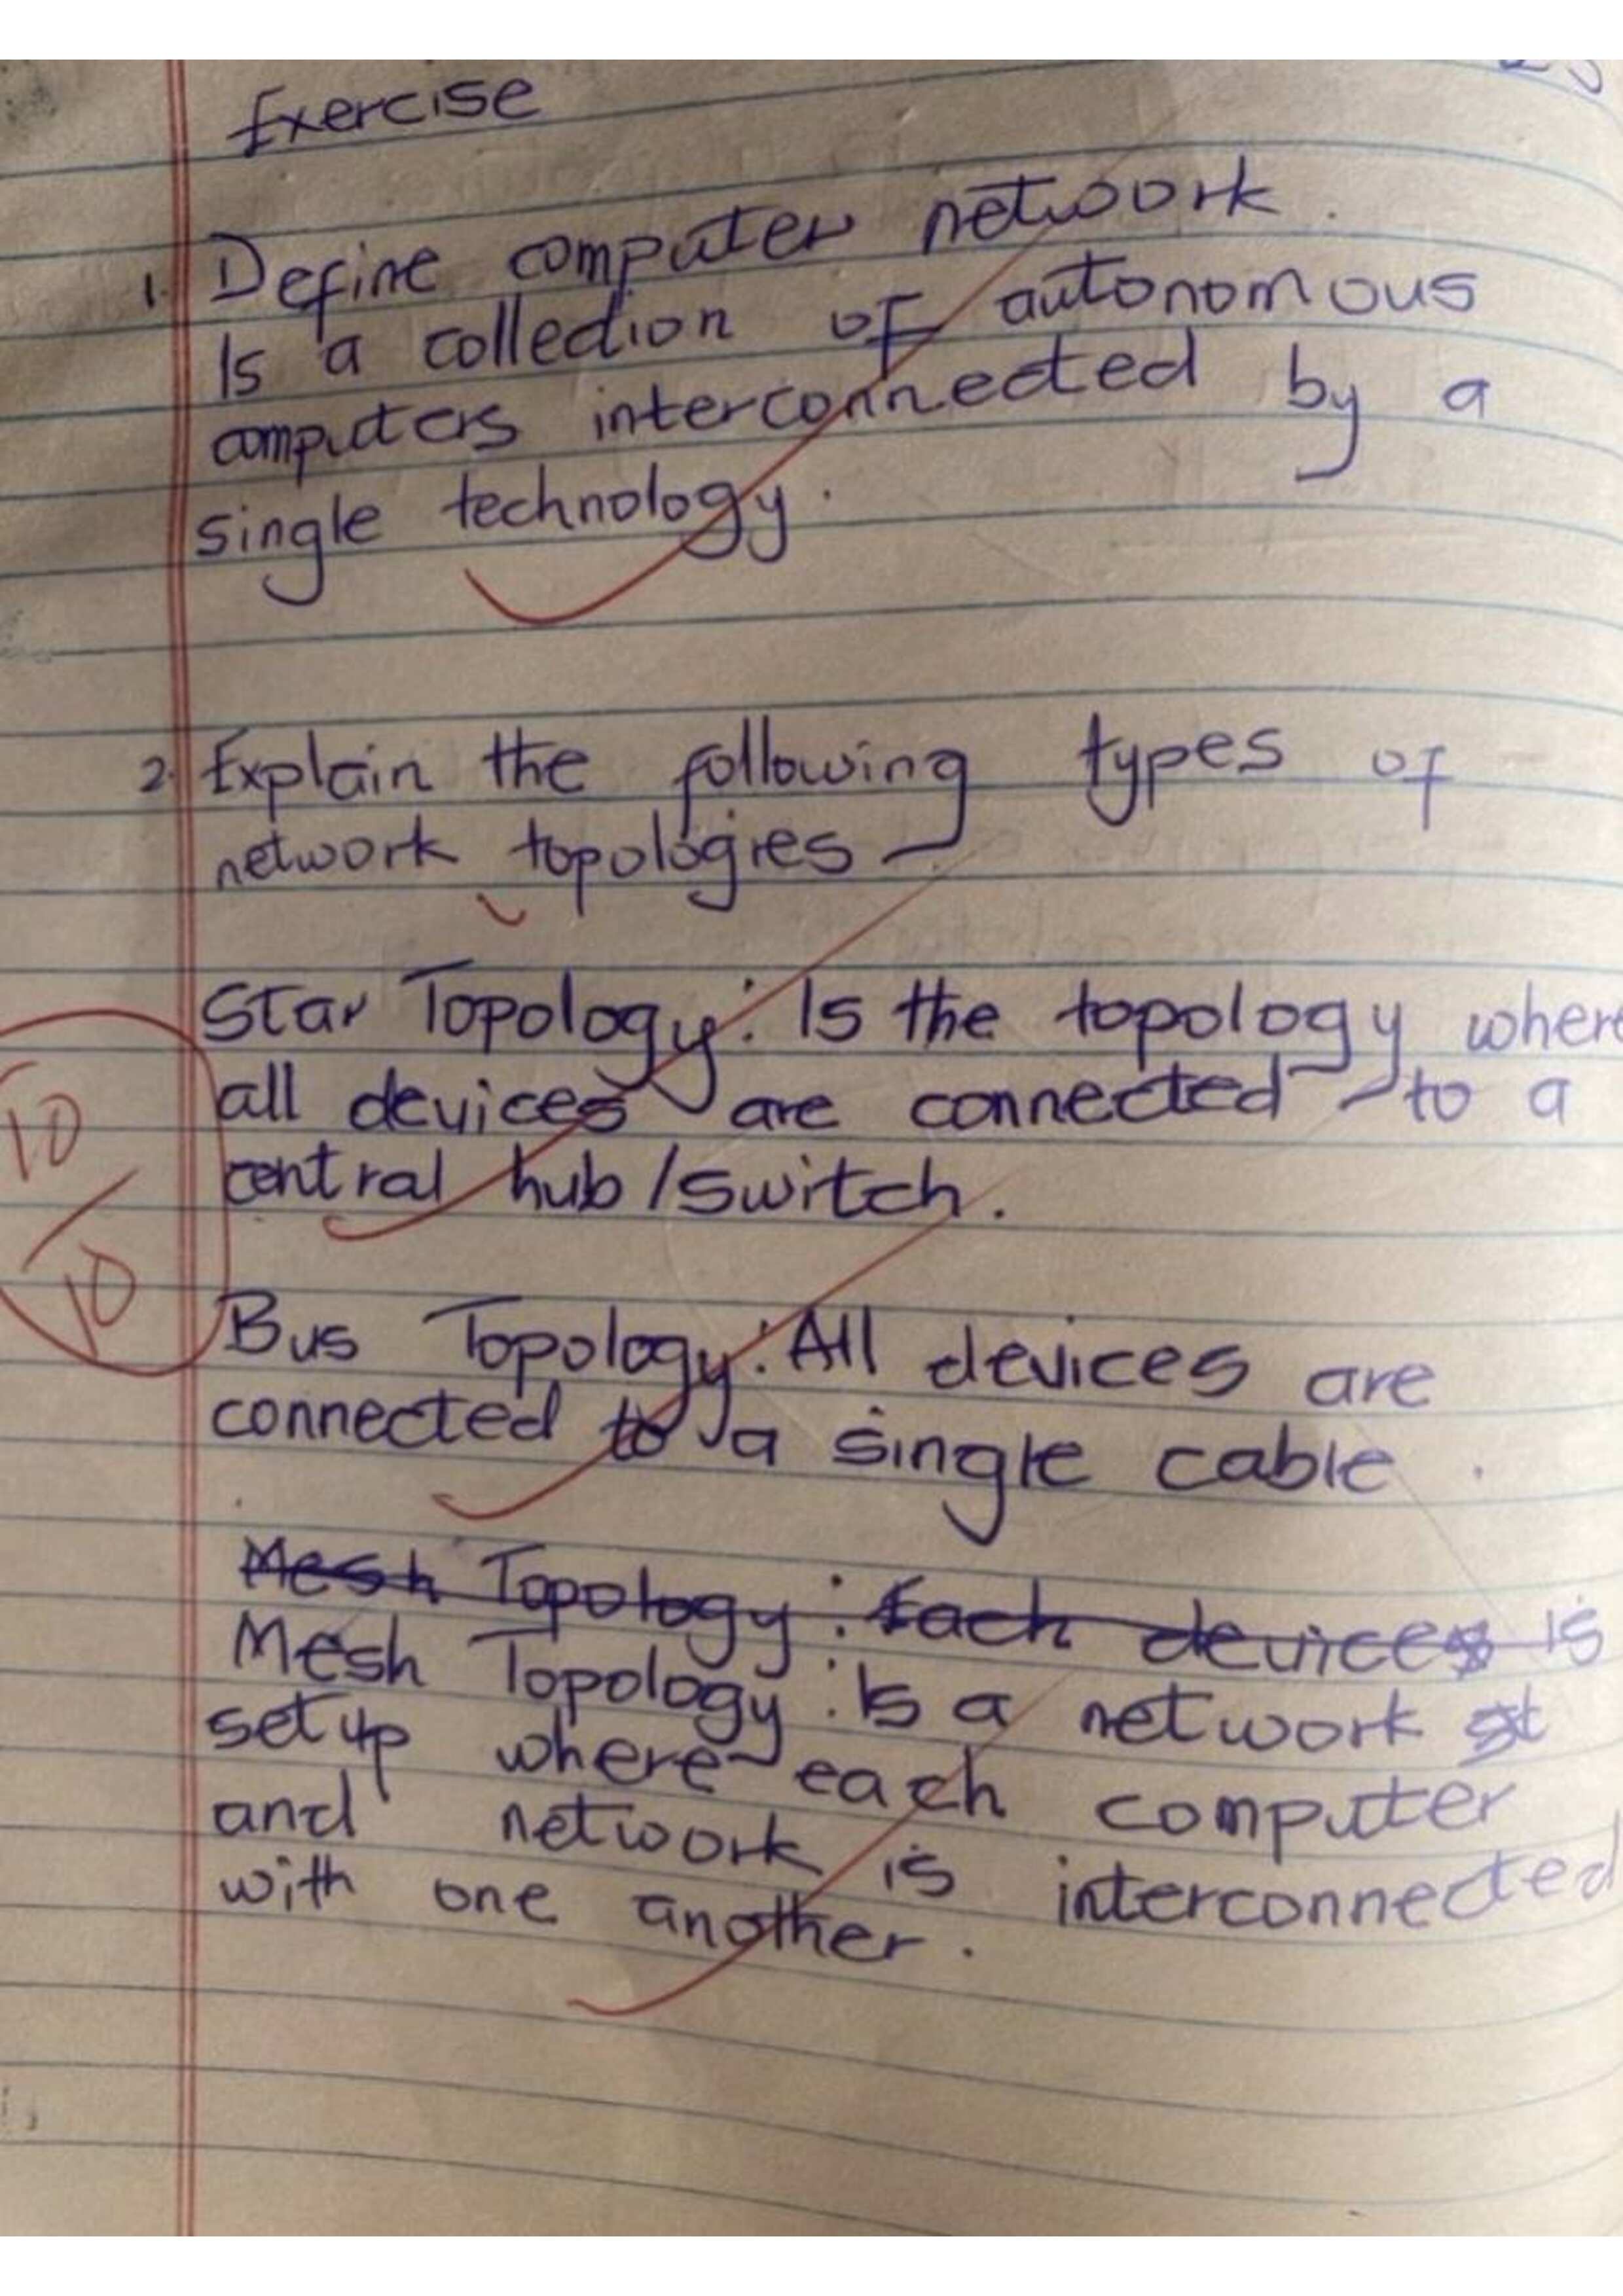 Exercise
1. Define computer network.
Is a collection of autonomous
computers interconnected by a
single technology.
2. Explain the following types of
network topologies
Star Topology: Is the topology where
all devices are connected to a
central hub/switch.
10
10
Bus Topology: All devices are
connected to a single cable.
Mesh Topology: Each devices is
Mesh Topology: Is a network st
setup where each computer
and network is interconnected
with one another.